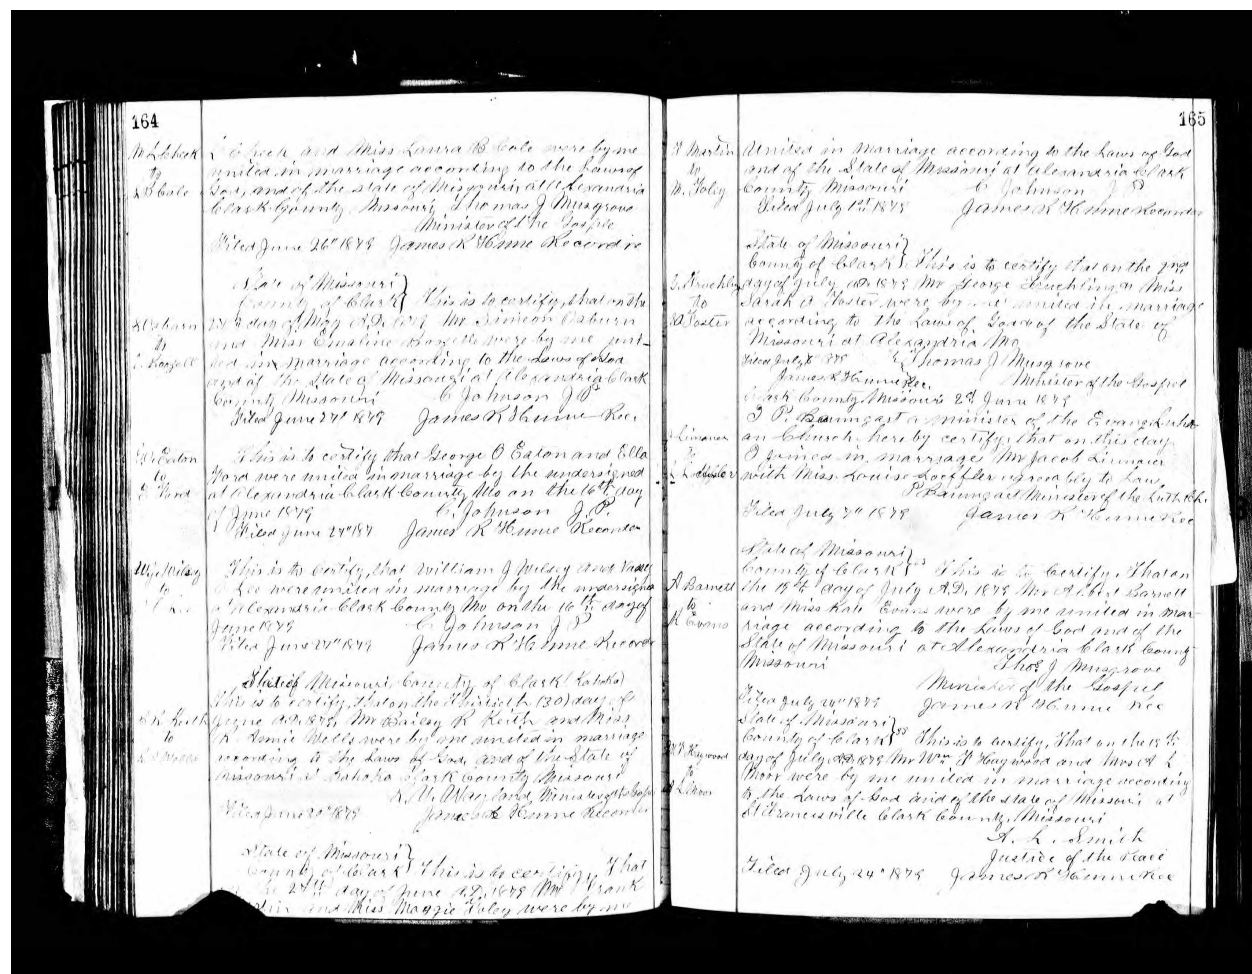 164
M L Cheek
to
L B Cole
L Cheek and Miss Laura B Cole were by me
united in marriage according to the Laws of
God, and of the state of Missouri, at Alexandria
Clark County Missouri Thomas J Musgrove
Minister of the Gosple
Filed June 26th 1879 James R Hume Recorder
State of Missouri
County of Clark This is to certify, that on the
S Osburn
to
day of May A.D. 1879 Mr Simeon Osburn
and Miss Emaline were by me uni-
ted in marriage according to the Laws of God
and of the State of Missouri at Alexandria Clark
County Missouri C Johnson J P
Filed June 27th 1879 James R Hume Rec.
Eaton
to
This is to certify that George O Eaton and Ella
Ward were united in marriage by the undersigned
at Alexandria Clark County Mo on the 16th day
of June 1879 C. Johnson J. P.
Filed June 27th 187 James R Hume Recorder
W J Wilsey
to
Lee
This is to certify, that William J Wilsey and
Lee were united in marriage by the undersigned
at Alexandria Clark County Mo on the 16th day of
June 1879 C Johnson J P
Filed June 27th 1879 James R Hume Recorder
State of Missouri County of Clark (Kahoka)
This is to certify, that on the thirtieth (30) day of
B R Keith
to
June A.D. 1879, Mr Bailey R Keith and Miss
Annie Wells were by me united in marriage
according to the Laws of God, and of the State of
Missouri at Kahoka Clark County Missouri
Wayland, Minister of the Gospel
Filed June 30th 1879 James R Hume Recorder
State of Missouri
County of Clark This is to certify, That
the 24th day of June A.D. 1879 Mr Frank
Martin and Miss Maggie Foley were by me
165
F Martin
to
M. Foley
United in marriage according to the Laws of God
and of the State of Missouri at Alexandria Clark
County Missouri C Johnson J P
Filed July 1st 1879 James R Hume Recorder
State of Missouri
County of Clark This is to certify that on the 2nd
G.
to
S A Foster
day of July A.D. 1879 Mr George & Miss
Sarah A Foster were by me united in marriage
according to the Laws of God & of the State of
Missouri at Alexandria Mo
Filed July 1879 Thomas J Musgrove
James R Hume Rec. Minister of the Gospel
Clark County, Missouri 22d June 1879
I P. Baumgart a minister of the Evang. Luther-
an Church hereby certify, that on this day
I joined in marriage Mr Jacob
to
L Loeffler
with Miss Louise Loeffler agreeably to Law,
P Baumgart Minister of the Luth. Ch.
Filed July 7th 1879 James R Hume Rec
State of Missouri
County of Clark ss This is to Certify, That on
A Barnett
to
K Evans
the 15th day of July A.D. 1879 Mr Albert Barnett
and Miss Kate Evans were by me united in mar-
riage according to the Laws of God and of the
State of Missouri at Alexandria Clark County
Missouri Thos J Musgrove
Minister of the Gospel
Filed July 24th 1879 James R Hume Rec
State of Missouri
County of Clark ss This is to Certify, That on the 19th
W F Haywood
to
A L Moor
day of July A.D. 1879 Mr Wm F Haywood and Mrs A L
Moor were by me united in marriage according
to the Laws of God and of the state of Missouri at
St Francisville Clark County, Missouri
A. L. Smith
Justice of the Peace
Filed July 24th 1879 James R Hume Rec